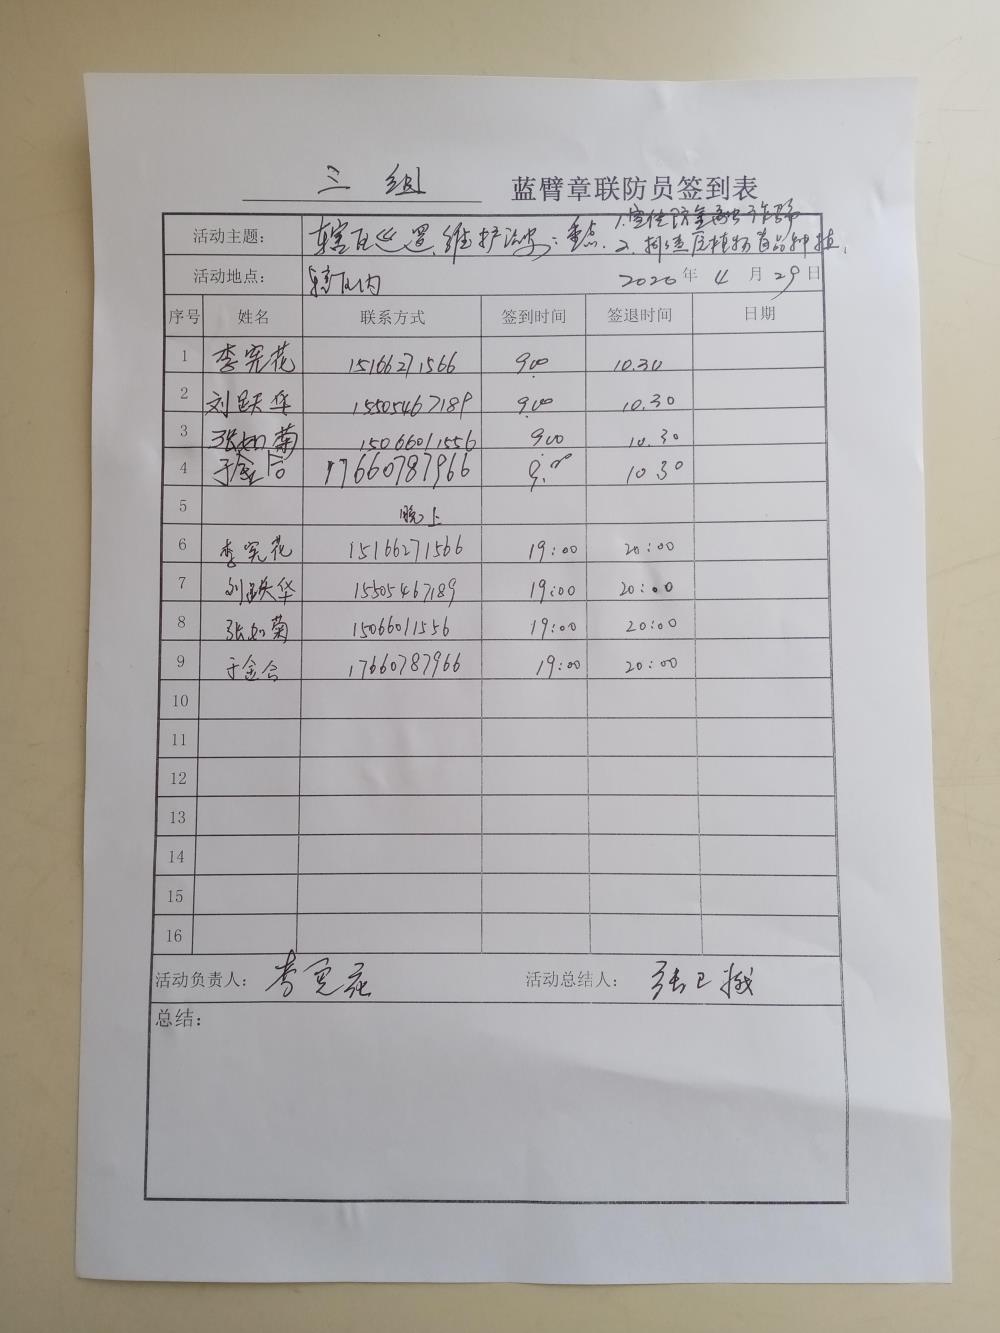 三组 蓝臂章联防员签到表
1.宣传防金融诈骗
活动主题： 辖区巡逻、维护治安；重点 2.排查原植物毒品种植。
活动地点： 辖区内 2020 年 4 月 29 日
序号 姓名 联系方式 签到时间 签退时间 日期
1 李宪花 15166271566 9:00 10.30
2 刘跃华 15505467189 9:00 10.30
3 张如菊 15066011556 9:00 10.30
4 于金合 17660787966 9:00 10.30
5 晚上
6 李宪花 15166271566 19:00 20:00
7 刘跃华 15505467189 19:00 20:00
8 张如菊 15066011556 19:00 20:00
9 于金合 17660787966 19:00 20:00
10
11
12
13
14
15
16
活动负责人： 李宪花 活动总结人： 张
总结：